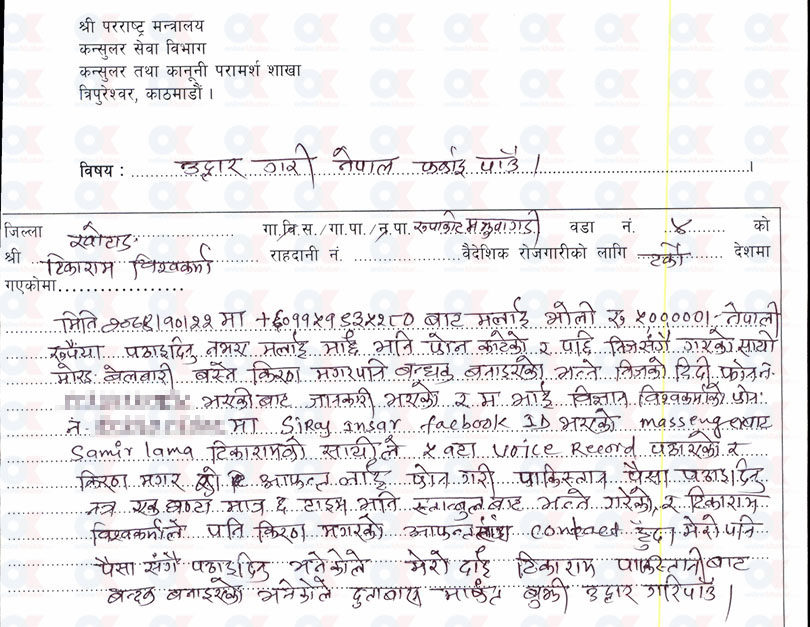 श्री परराष्ट्र मन्त्रालय
कन्सुलर सेवा विभाग
कन्सुलर तथा कानूनी परामर्श शाखा
त्रिपुरेश्वर, काठमाडौं ।
विषय : उद्दार गरी नेपाल फर्काइ पाउँ ।
जिल्ला खोटाङ गा.वि.स./गा.पा./न.पा. रुपाकोट मझुवागढी वडा नं. ४ को
श्री टिकाराम विश्वकर्मा राहदानी नं. वैदेशिक रोजगारीको लागि टर्की देशमा
गएकोमा
मिति २०७४।१०।२२ मा बाट मलाई भोली रु ५०००००।- नेपाली
रुपैंया पठाइदिनु नभए मलाई मार्छ भनि फोन काटेको र पछि निजसंगै गएको साथी
मोरङ बेलवारी बस्ने किरण मगरपनि बन्धक बनाइएको भन्ने निजको दिदी फोन नं
भएकीबाट जानकारी भएको र म भाई विज्ञान विश्वकर्माको फोन
नं. मा Siraj ansar facbook ID भएको massengerबाट
Samir lama टिकारामको साथीले ५ वटा Voice Record पठाएको र
किरण मगर को आफन्त लाई फोन गरी पाकिस्तान पैसा पठाइदिनु
नत्र एक घण्टा मात्र छ टाइम भनि स्तानबुल बाट भन्ने गरेको, र टिकाराम
विश्वकर्माले पनि किरण मगरको आफन्त contact हुँदा मेरो पनि
पैसा संगै पठाइदिनु भनेकोले मेरो दाई टिकाराम पाकिस्तानी बाट
बन्धक बनाइएको भनेकोले दुतावास मार्फत बुझी उद्दार गरिपाउँ ।